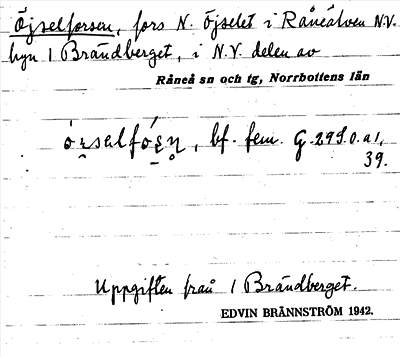 Öjselforsen, fors N. Öjselet i Råneälven N.V.
byn 1 Brändberget, i N.V. delen av
Råneå sn och tg, Norrbottens län
bf. fem. G. 29 S.O. a 1,
39.
Uppgiften från 1 Brändberget.
EDVIN BRÄNNSTRÖM 1942.